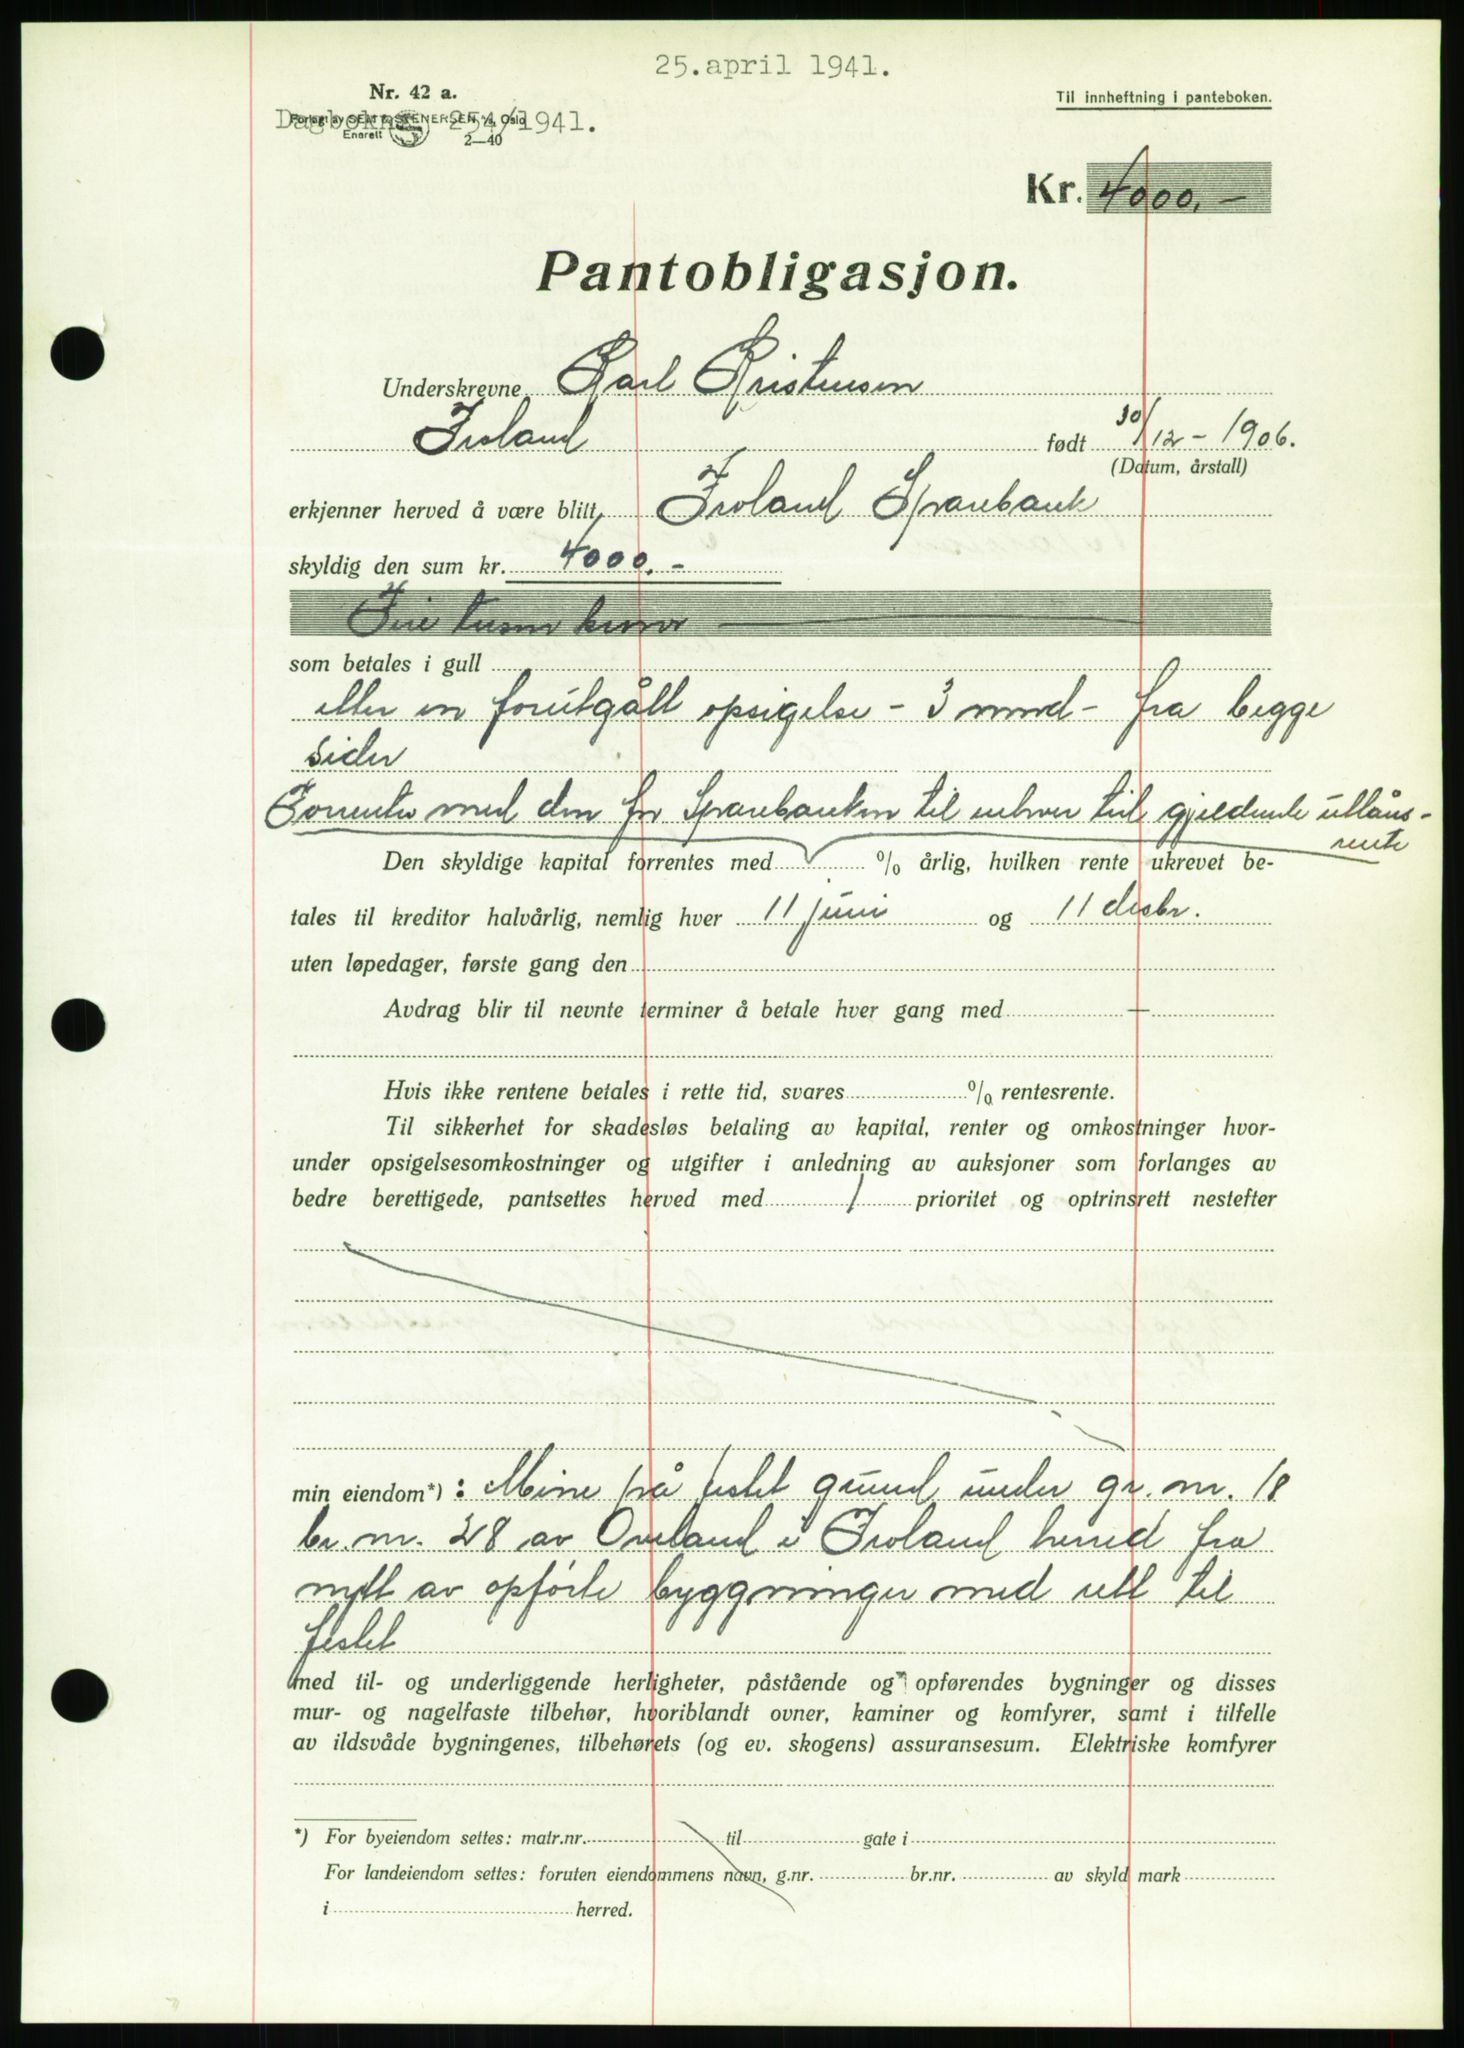 25. april 1941.
Nr. 42 a.
Til innheftning i panteboken.
Dagboknr. 254/1941.
Forlagt av SEM & STENERSEN A/S, Oslo
Enerett
2—40
Kr. 4000.-
Pantobligasjon.
Underskrevne Karl Kristensen
Froland født 30/12 - 1906.
(Datum, årstall)
erkjenner herved å være blitt Froland Sparebank
skyldig den sum kr. 4000.-
Fire tusen kroner
som betales i gull
efter en forutgått opsigelse - 3 mnd - fra begge
sider
Forrentes med den for Sparebanken til enhver tid gjeldende utlåns-
rente
Den skyldige kapital forrentes med % årlig, hvilken rente ukrevet be-
tales til kreditor halvårlig, nemlig hver 11 juni og 11 desbr.
uten løpedager, første gang den
Avdrag blir til nevnte terminer å betale hver gang med —
Hvis ikke rentene betales i rette tid, svares % rentesrente.
Til sikkerhet for skadesløs betaling av kapital, renter og omkostninger hvor-
under opsigelsesomkostninger og utgifter i anledning av auksjoner som forlanges av
bedre berettigede, pantsettes herved med 1 prioritet og optrinsrett nestefter
min eiendom*) : Mine på festet grund under gr. nr. 18
br. nr. 28 av Oveland i Froland herred fra
nytt av opførte byggninger med rett til
festet
med til- og underliggende herligheter, påstående og opførendes bygninger og disses
mur- og nagelfaste tilbehør, hvoriblandt ovner, kaminer og komfyrer, samt i tilfelle
av ildsvåde bygningenes, tilbehørets (og ev. skogens) assuransesum. Elektriske komfyrer
*) For byeiendom settes: matr.nr. til gate i
For landeiendom settes: foruten eiendommens navn, g.nr. br.nr. av skyld mark
i herred.